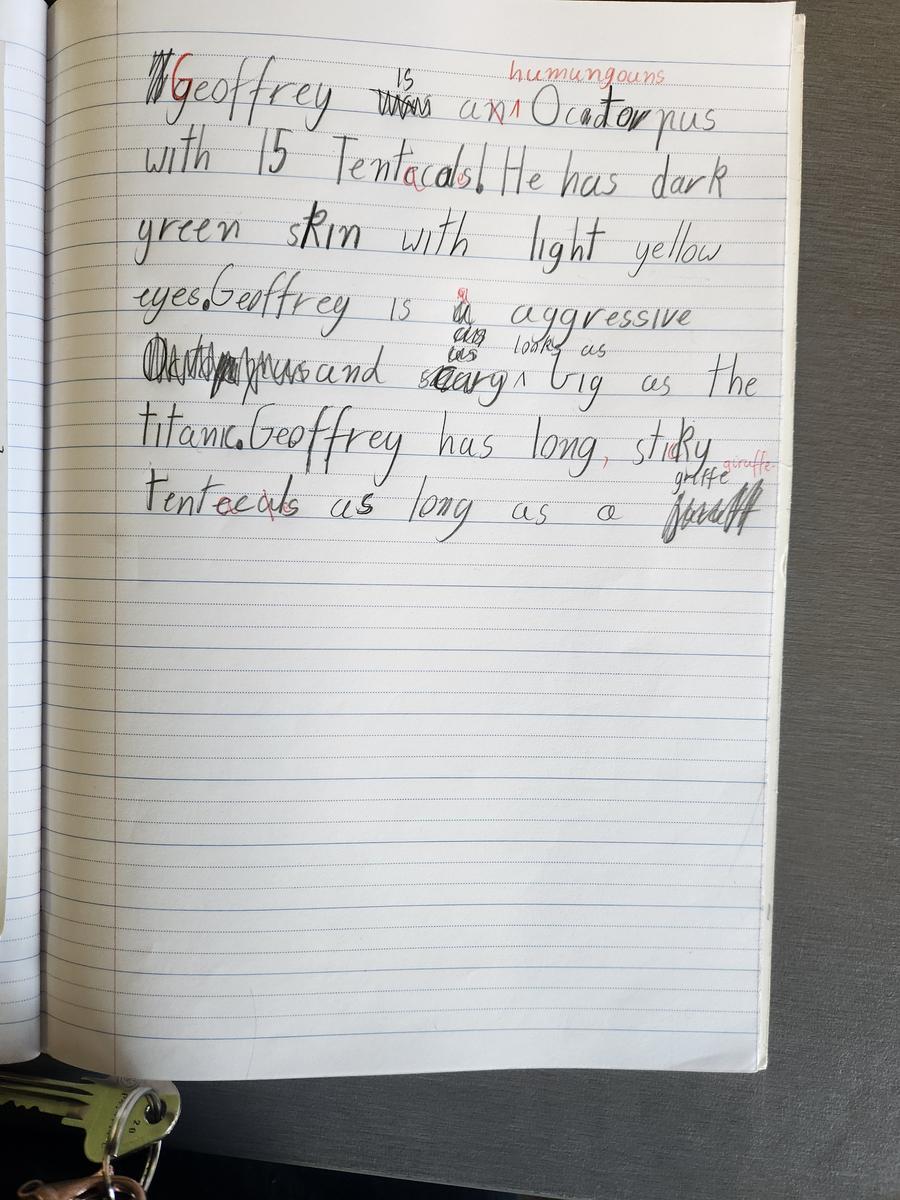 Geoffrey is a humungouns Ocatorpus
with 15 Tentacals! He has dark
green skin with light yellow
eyes. Geoffrey is a aggressive
and scary looks as big as the
titanic. Geoffrey has long, sticky
tentacals as long as a griffe giraffe